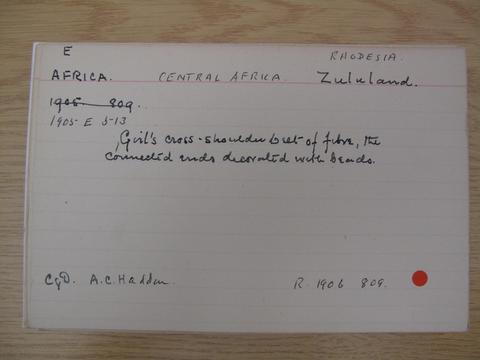 E RHODESIA.
AFRICA. CENTRAL AFRICA. Zululand.
1905 809.
1905 E 513
Girl's cross-shoulder belt of fibre, the
connected ends decorated with beads.
CgD. A.C. Haddon R. 1906 809.